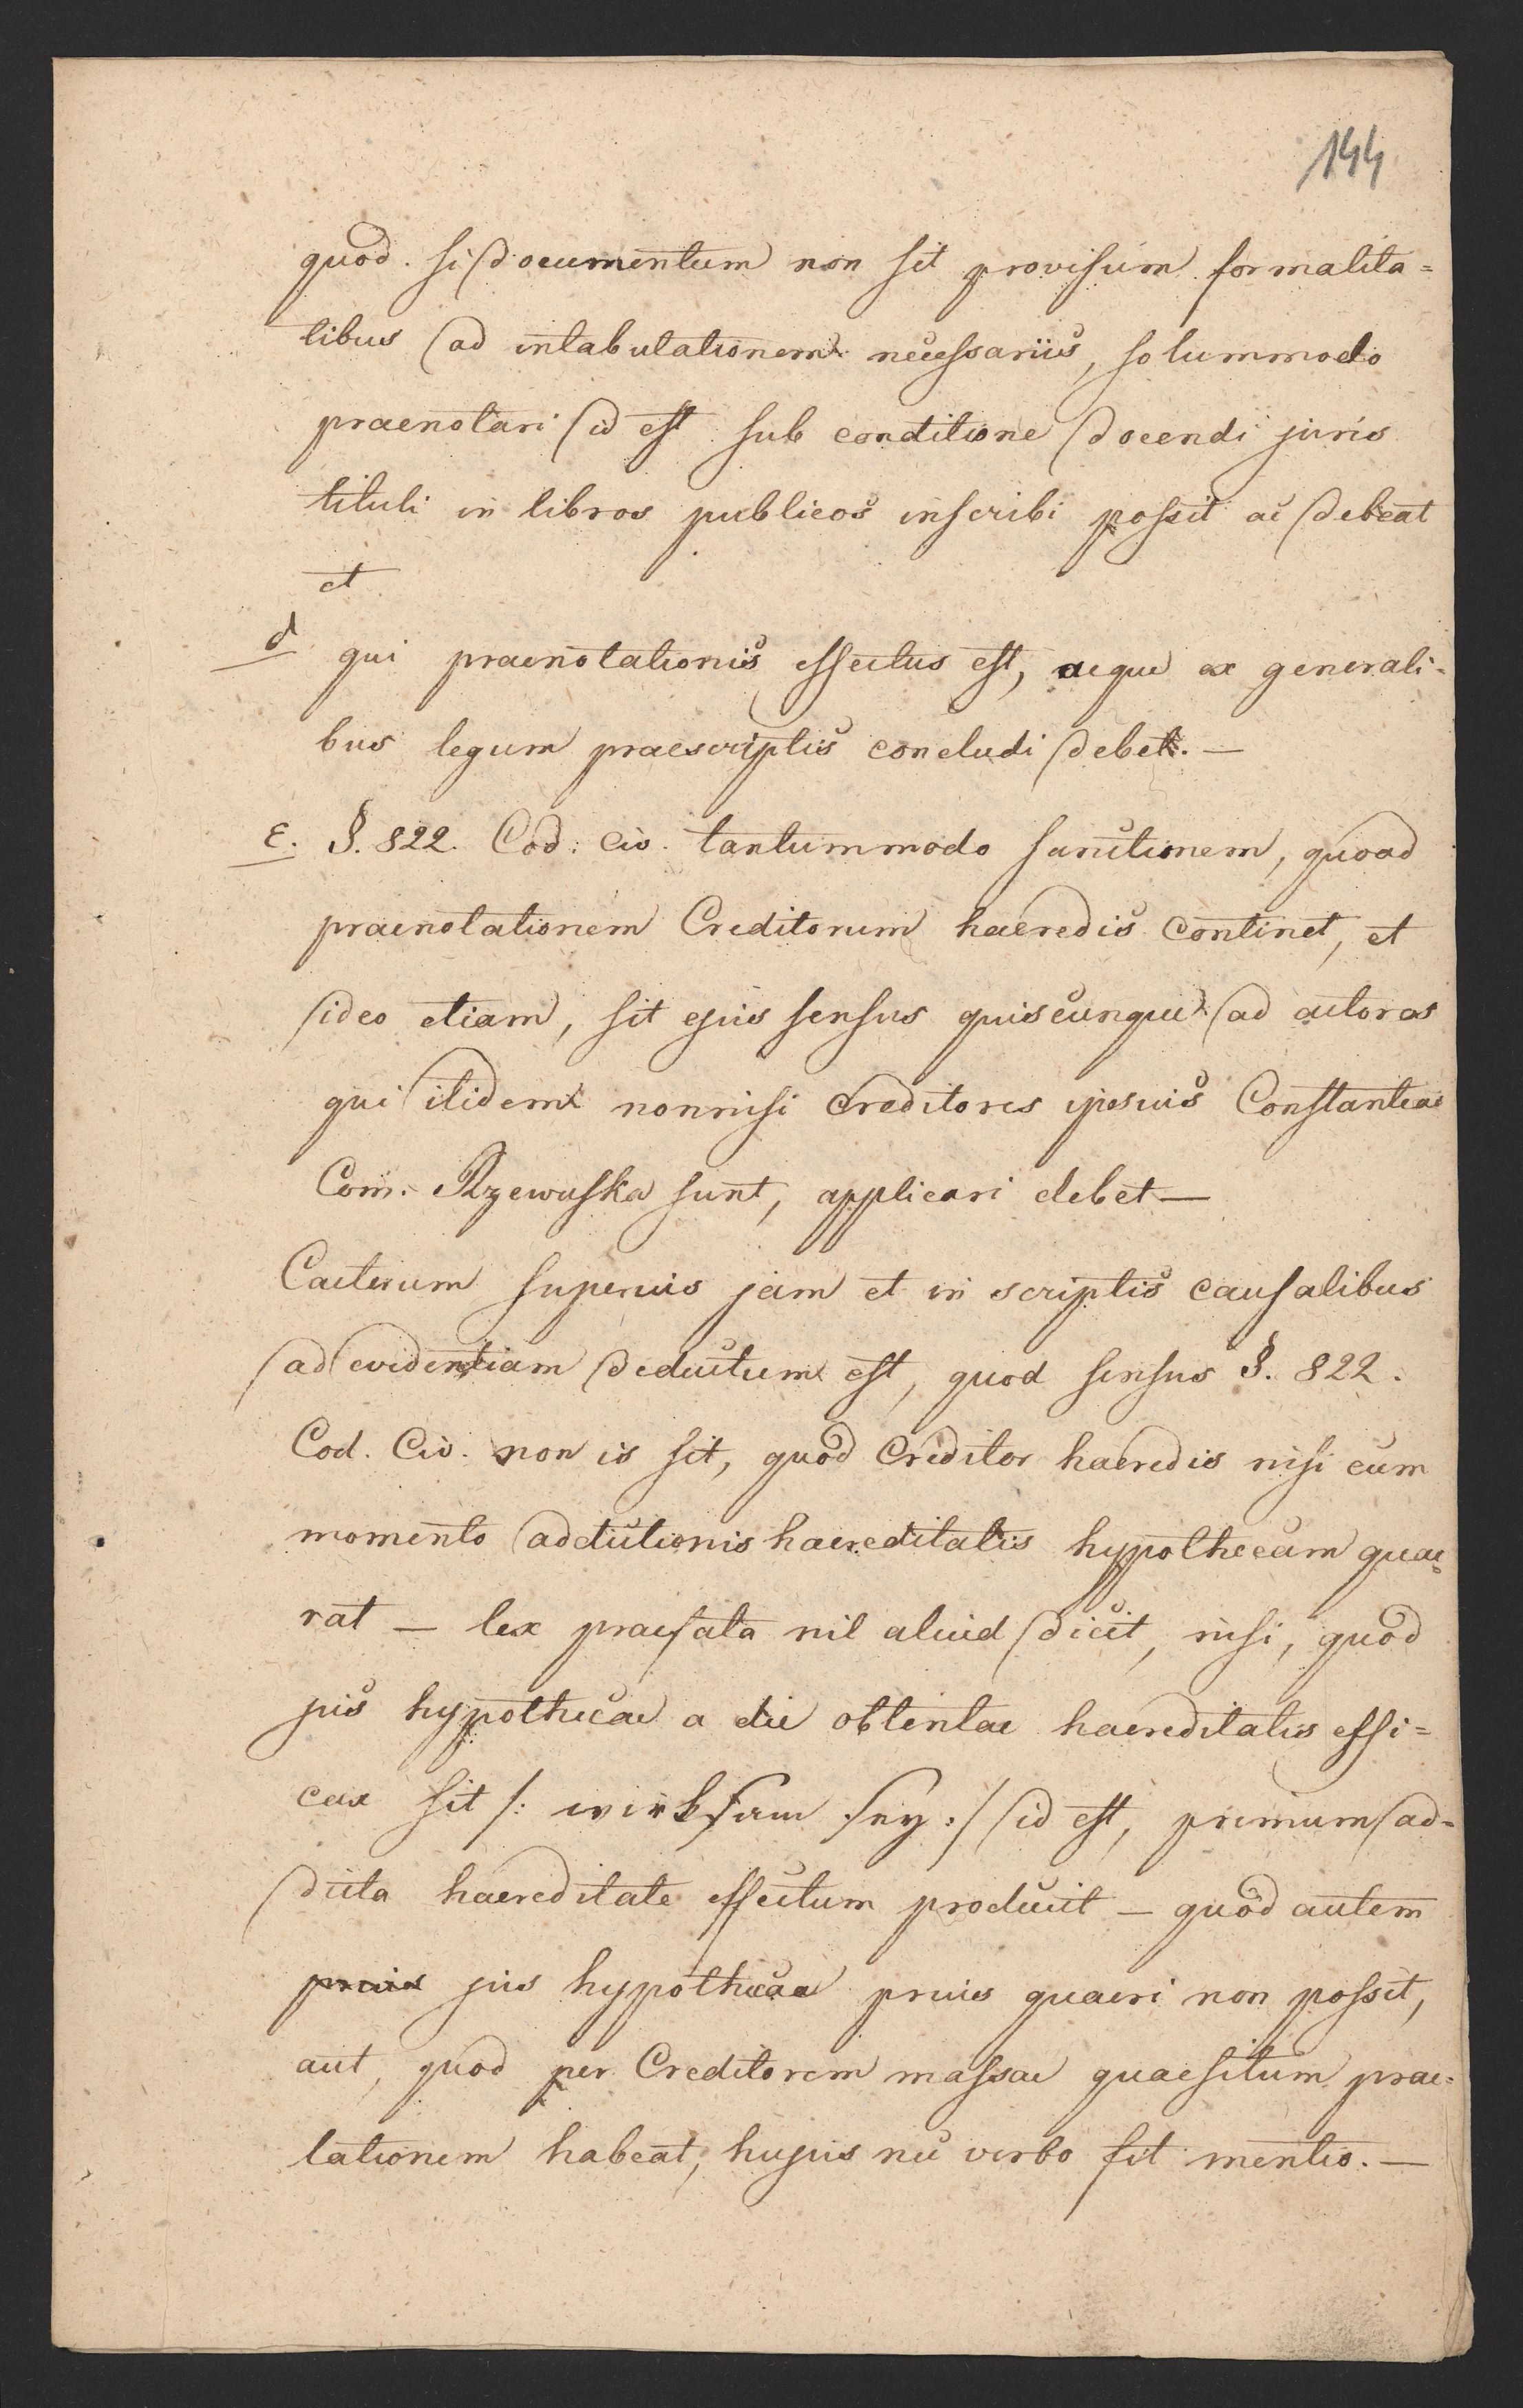 144
quod si documentum non sit provisum formalita=
tibus ad intabulationem necessariis, solummodo
praenotari id est sub conditione docendi juris
tituli in libros publicos inscribi possit ac debeat
et
d qui praenotationis effectus est, aeque ex generali=
bus legum praescriptis concludi debet. —
e. §. 822. Cod: Civ. tantummodo sanctionem, quoad
praenotationem Creditorum haeredis continet, et
ideo etiam, sit ejus sensus quiscunque ad actores
qui itidem nonnisi Creditores ipsius Constantiae
Com. Rzewuska sunt, applicari debet —
Caeterum superius jam et in scriptis causalibus
ad evidentiam deductum est, quod sensus §. 822.
Cod. Civ. non is sit, quod Creditor haeredis nisi cum
momento addictionis haereditatis hypothecam quae=
rat — lex praefata nil aliud dicit, nisi, quod
jus hypothecae a die obtentae haereditatis effi=
cax sit /: wirksam sey :/ id est, primum ad=
dicta haereditate effectum producit — quod autem
prius jus hypothecae prius quaeri non possit,
aut, quod per Creditorem massae quaesitum prae=
lationem habeat, hujus nec verbo fit mentio. —